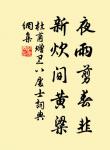 夜雨剪春韭
新炊间黄粱
杜甫赠卫八处士词典
网集